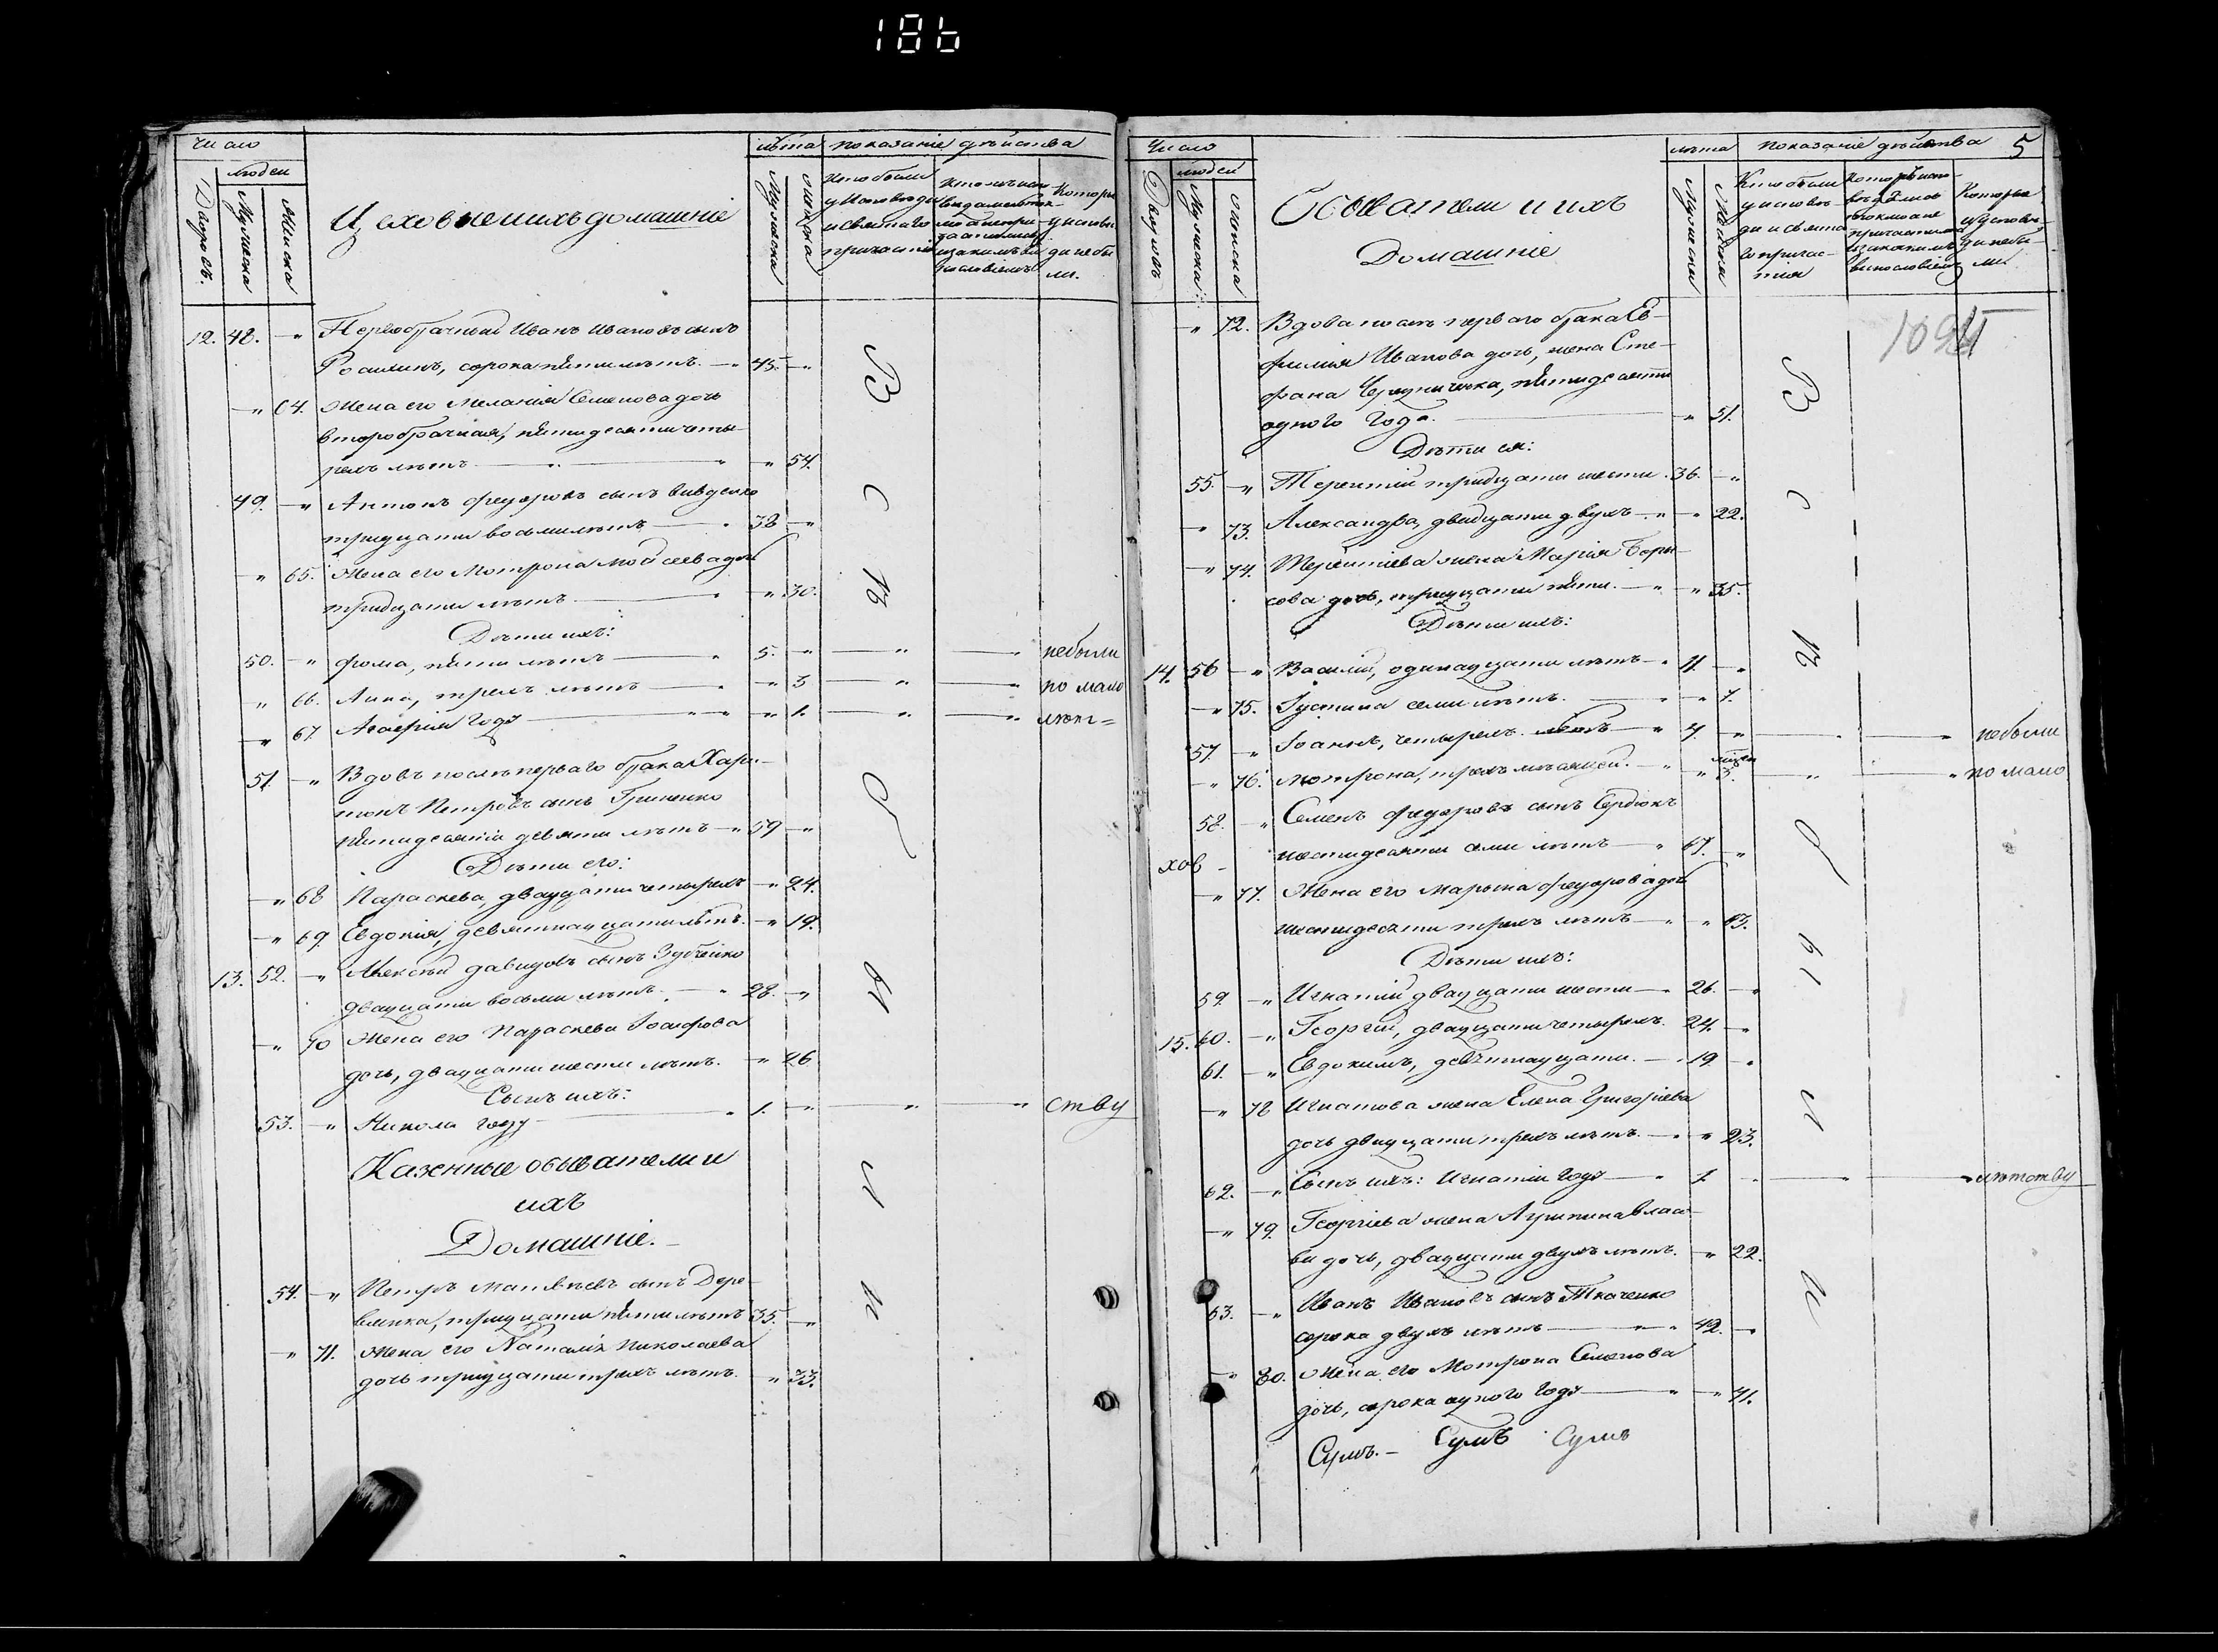 186
Число
людей
Дворовъ.
Мужеска
Женска
Цеховые и ихъ домашніе
лѣта
Мужеска
Женска
показаніе дѣйства
Кто были
у исповѣди
и святаго
причастія
Которы
у исповѣ-
ди не бы
ли.
12. 48. — " Первобрачный Иванъ Ивановъ сынъ
сорока пяти лѣтъ. — 45. — "
— " 64. Жена его Меланія Семенова дочь
второбрачная, пятидесяти четы-
рехъ лѣтъ — " — " 54.
49. — " Антонъ Федоровъ сынъ
тридцати восьми лѣтъ — " 38 — "
— " 65. Жена его Мотрона Мойсеева дочь
тридцати лѣтъ — " — " 30.
Дѣти ихъ:
50. — " Фома, пяти лѣтъ — " 5. — " — " — " небыли
" 66. Анна, трехъ лѣтъ — " — " 3 — " — " по мало
— " 67. Агафія году — " — " 1. — " — " лѣт=
51. — " Вдовъ послѣ перваго брака Хари-
тонъ Петровъ сынъ Гриненко
пятидесяти девяти лѣтъ — " 59 — "
Дѣти его:
— " 68 Параскева, двадцати четырехъ — " 24.
— " 69. Евдокія, девятнадцати лѣтъ. — " 19.
13. 52. — " Алексѣй Давидовъ сынъ Зубченко
двадцати восьми лѣтъ. — " 28. — "
— " 70 Жена его Параскева Іосифова
дочь, двадцати шести лѣтъ. — " 26
Сынъ ихъ:
53. — " Никола году — " 1. — " — " — " ству
Казенные обыватели и
ихъ
Домашніе.
54. — " Петръ Матвѣевъ сынъ Дере-
вянка, тридцати пяти лѣтъ 35. — "
— " 71. Жена его Наталія Николаева
дочь тридцати трехъ лѣтъ. — " 33.
В
с
ѣ
б
ы
л
и
Число
людей
Мужеска
Женска
Обыватели и ихъ
Домашніе
лѣта
Мужеска
Женска
показаніе дѣйства
5
Кто были
у исповѣ-
ди и свята
го причас-
тія
Которыя
у исповѣ-
ди небы-
ли
" 72. Вдова послѣ перваго брака Ев-
фимія Иванова дочь, жена Сте-
фана Чередниченка, пятидесяти
одного года. — " 51.
Дѣти ея:
55. — " Терентій тридцати шести. 36. — "
— " 73. Александра, двадцати двухъ — " — " 22.
— " 74. Терентіева жена Марія Бори-
сова дочь, тридцати пяти. — " — " 35.
Дѣти ихъ:
14. 56 — " Василій, одинадцати лѣтъ — " 11. — "
— " 75. Іустина семи лѣтъ. — " — " 7.
57. — " Іоаннъ, четырехъ лѣтъ — " 4. — " — " — " небыли
— " 76. Мотрона, трехъ мѣсяцей. — " — " 3. — " — " по мало
58. — " Семенъ Федоровъ сынъ Сердюкъ
шестидесяти семи лѣтъ — " 67. — "
— " 77. Жена его Марьяна Федорова дочь
шестидесяти трехъ лѣтъ — " — " 63.
Дѣти ихъ:
59. — " Игнатій двадцати шести — " 26. — "
15. 60. — " Георгій, двадцати четырехъ. 24. — "
61. — " Евдокимъ, девятнадцати. — " 19. — "
— " 78 Игнатова жена Елена Григоріева
дочь двадцати трехъ лѣтъ. — " — " 23.
62. — " Сынъ ихъ: Игнатій году — " 1. — " — " — " лѣтству
— " 79. Георгіева жена Агрипина Влась-
ева дочь, двадцати двухъ лѣтъ. — " 22.
63. — " Иванъ Ивановъ сынъ Ткаченко
сорока двухъ лѣтъ — " 42. — "
— " 80. Жена его Мотрона Семенова
дочь, сорока одного году — " — " 41.
В
с
ѣ
б
ы
л
и